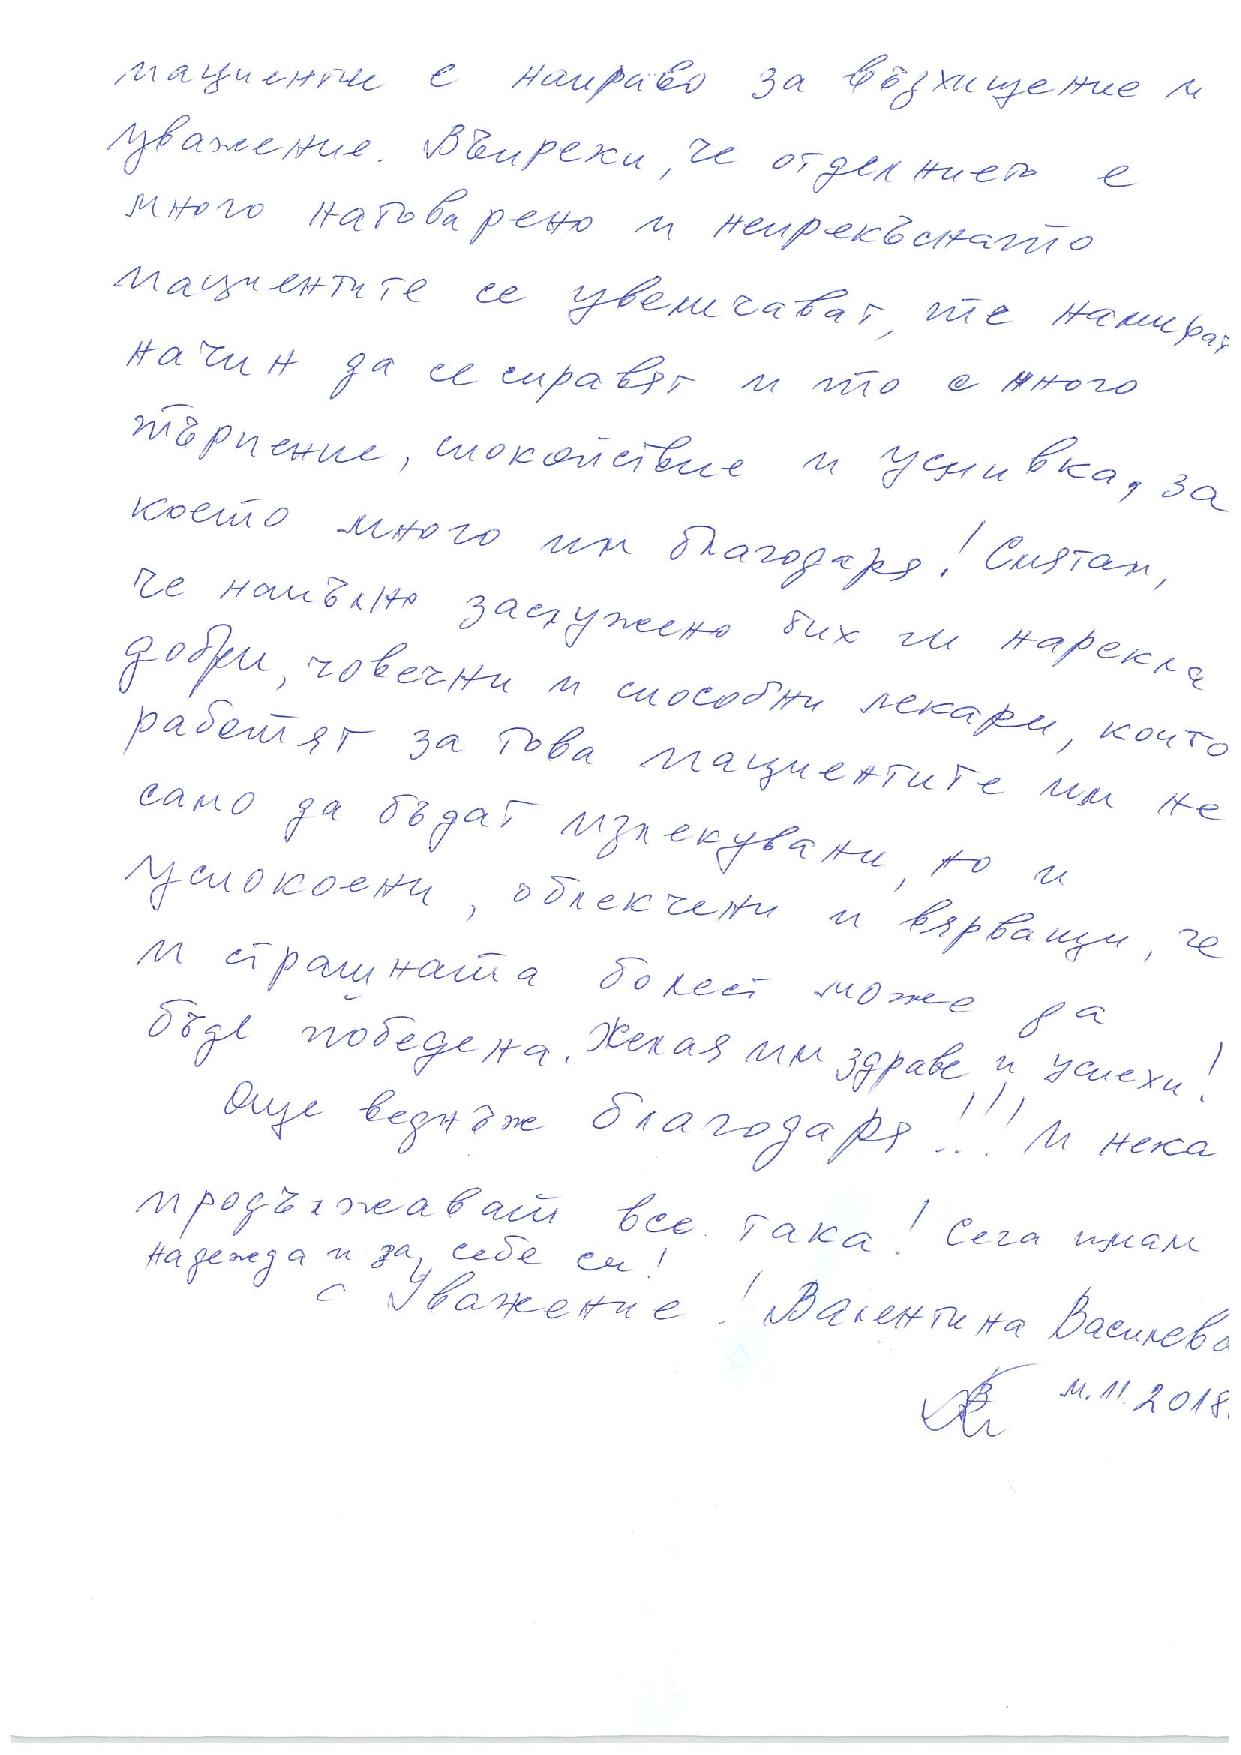 пациенти е направо за възхищение и
уважение. Въпреки, че отделнието е
много натоварено и непрекъснато
пациентите се увеличават, те намират
начин да се справят и то с много
търпение, спокойствие и усмивка, за
което много им благодаря! Смятам,
че напълно заслужено бих ги нарекла
добри, човечни и способни лекари, които
работят за това пациентите им не
само да бъдат излекувани, но и
успокоени, облекчени и вярващи, че
и страшната болест може да
бъде победена. Желая им здраве и успехи!
Още веднъж благодаря!!! И нека
продължават все така! Сега имам
надежда и за себе си!
с Уважение! Валентина Василева
11.11.2018.